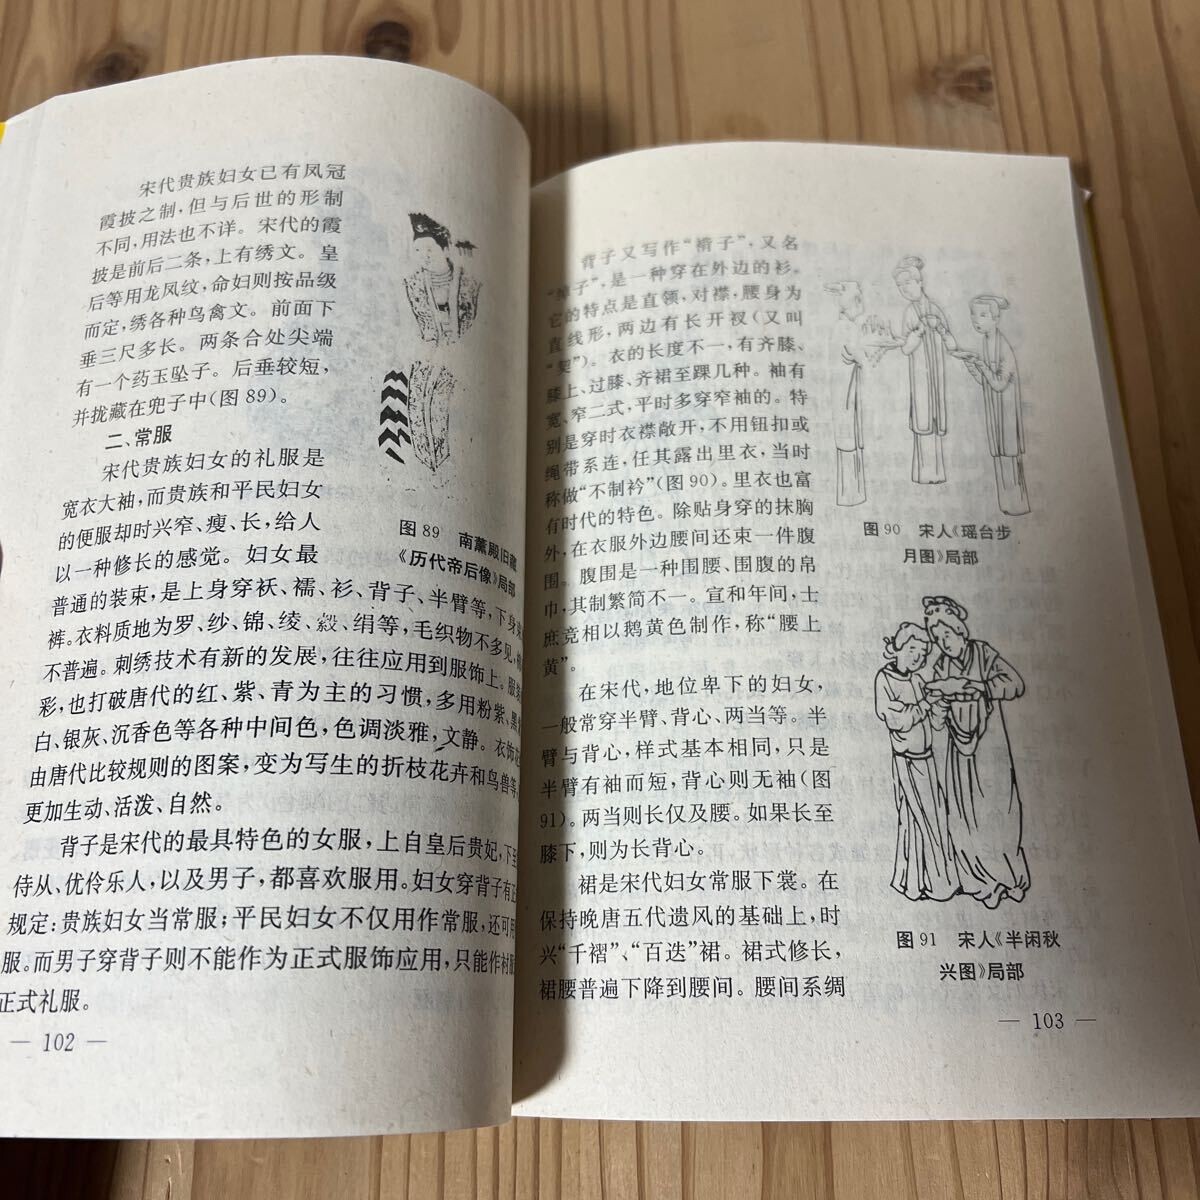 宋代贵族妇女已有凤冠
霞披之制,但与后世的形制
不同,用法也不详。宋代的霞
披是前后二条,上有绣文。皇
后等用龙凤纹,命妇则按品级
而定,绣各种鸟禽文。前面下
垂三尺多长。两条合处尖端
有一个药玉坠子。后垂较短,
并拢藏在兜子中(图89)。
二、常服
宋代贵族妇女的礼服是
宽衣大袖,而贵族和平民妇女
的便服却时兴窄、瘦、长,给人
以一种修长的感觉。妇女最
普通的装束,是上身穿袄、襦、衫、背子、半臂等,下身
裤。衣料质地为罗、纱、锦、绫、縠、绢等,毛织物不多见,
不普遍。刺绣技术有新的发展,往往应用到服饰上。服
彩,也打破唐代的红、紫、青为主的习惯,多用粉紫、黑
白、银灰、沉香色等各种中间色,色调淡雅,文静。衣饰
由唐代比较规则的图案,变为写生的折枝花卉和鸟兽等,
更加生动、活泼、自然。
背子是宋代的最具特色的女服,上自皇后贵妃,下至
侍从、优伶乐人,以及男子,都喜欢服用。妇女穿背子有
规定:贵族妇女当常服;平民妇女不仅用作常服,还可
服。而男子穿背子则不能作为正式服饰应用,只能作衬
正式礼服。
图89 南薰殿旧藏
《历代帝后像》局部
— 102 —
背子又写作“褙子”,又名
“绰子”,是一种穿在外边的衫。
它的特点是直领,对襟,腰身为
直线形,两边有长开衩(又叫
“契”)。衣的长度不一,有齐膝、
膝上、过膝、齐裙至踝几种。袖有
宽、窄二式,平时多穿窄袖的。特
别是穿时衣襟敞开,不用钮扣或
绳带系连,任其露出里衣,当时
称做“不制衿”(图90)。里衣也富
有时代的特色。除贴身穿的抹胸
外,在衣服外边腰间还束一件腹
围。腹围是一种围腰、围腹的帛
巾,其制繁简不一。宣和年间,士
庶竞相以鹅黄色制作,称“腰上
黄”。
在宋代,地位卑下的妇女,
一般常穿半臂、背心、两当等。半
臂与背心,样式基本相同,只是
半臂有袖而短,背心则无袖(图
91)。两当则长仅及腰。如果长至
膝下,则为长背心。
裙是宋代妇女常服下裳。在
保持晚唐五代遗风的基础上,时
兴“千褶”、“百迭”裙。裙式修长,
裙腰普遍下降到腰间。腰间系绸
图90 宋人《瑶台步
月图》局部
图91 宋人《半闲秋
兴图》局部
— 103 —